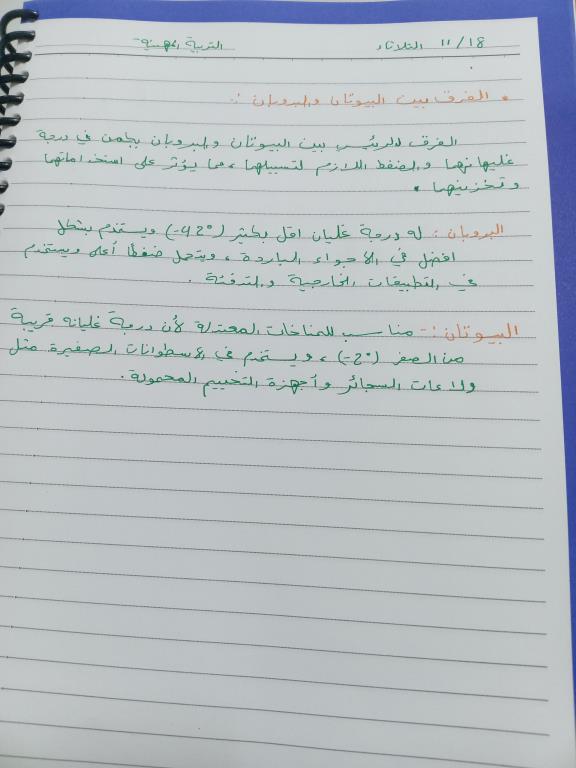 11/18 الثلاثاء التربية المهنية:-
• الفرق بين البيوتان والبروبان :.
الفرق الرئيسي بين البيوتان والبروبان يكمن في درجة
غليانهما والضغط اللازم لتسييلهما، مما يؤثر على استخداماتهما
وتخزينهما .
البروبان : له درجة غليان اقل بكثير (°42-) ويستخدم بشكل
افضل في الأجواء الباردة ، ويتحمل ضغطًا أعلى ويستخدم
في التطبيقات الخارجية والتدفئة .
البيوتان :- مناسب للمناخات المعتدلة لأن درجة غليانه قريبة
من الصفر (°2-) ، ويستخدم في الأسطوانات الصغيرة مثل
ولاعات السجائر وأجهزة التخييم المحمولة .